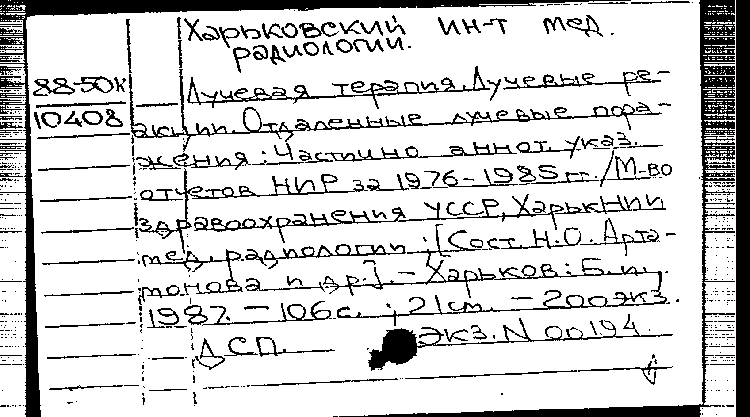 Харьковский ин-т мед.
радиологии.
88-50к
10408
Лучевая терапия. Лучевые ре-
акции. Отдаленные лучевые пора-
жения: Частично аннот. указ.
отчетов НИР за 1976-1985 гг. / М-во
здравоохранения УССР, Харьк НИИ
мед. радиологии; [Сост. Н.О. Арта-
монова и др.]. - Харьков: Б.и.,
1987. - 106 с. ; 21 см. - 200 экз.
ДСП. Экз. N 00194